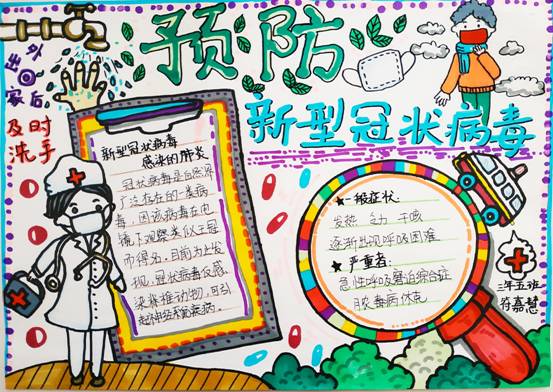 预防
新型冠状病毒
外出回家后
及时
洗手
新型冠状病毒
感染的肺炎
冠状病毒是自然界
广泛存在的一类病
毒，因该病毒在电
镜下观察类似王冠
而得名，目前为止发
现，冠状病毒仅感
染脊椎动物，可引
起神经系统疾病。
★一般症状：
发热 乏力 干咳
逐渐出现呼吸困难
★严重者：
急性呼吸窘迫综合症
脓毒病休克
三年五班
符嘉慧